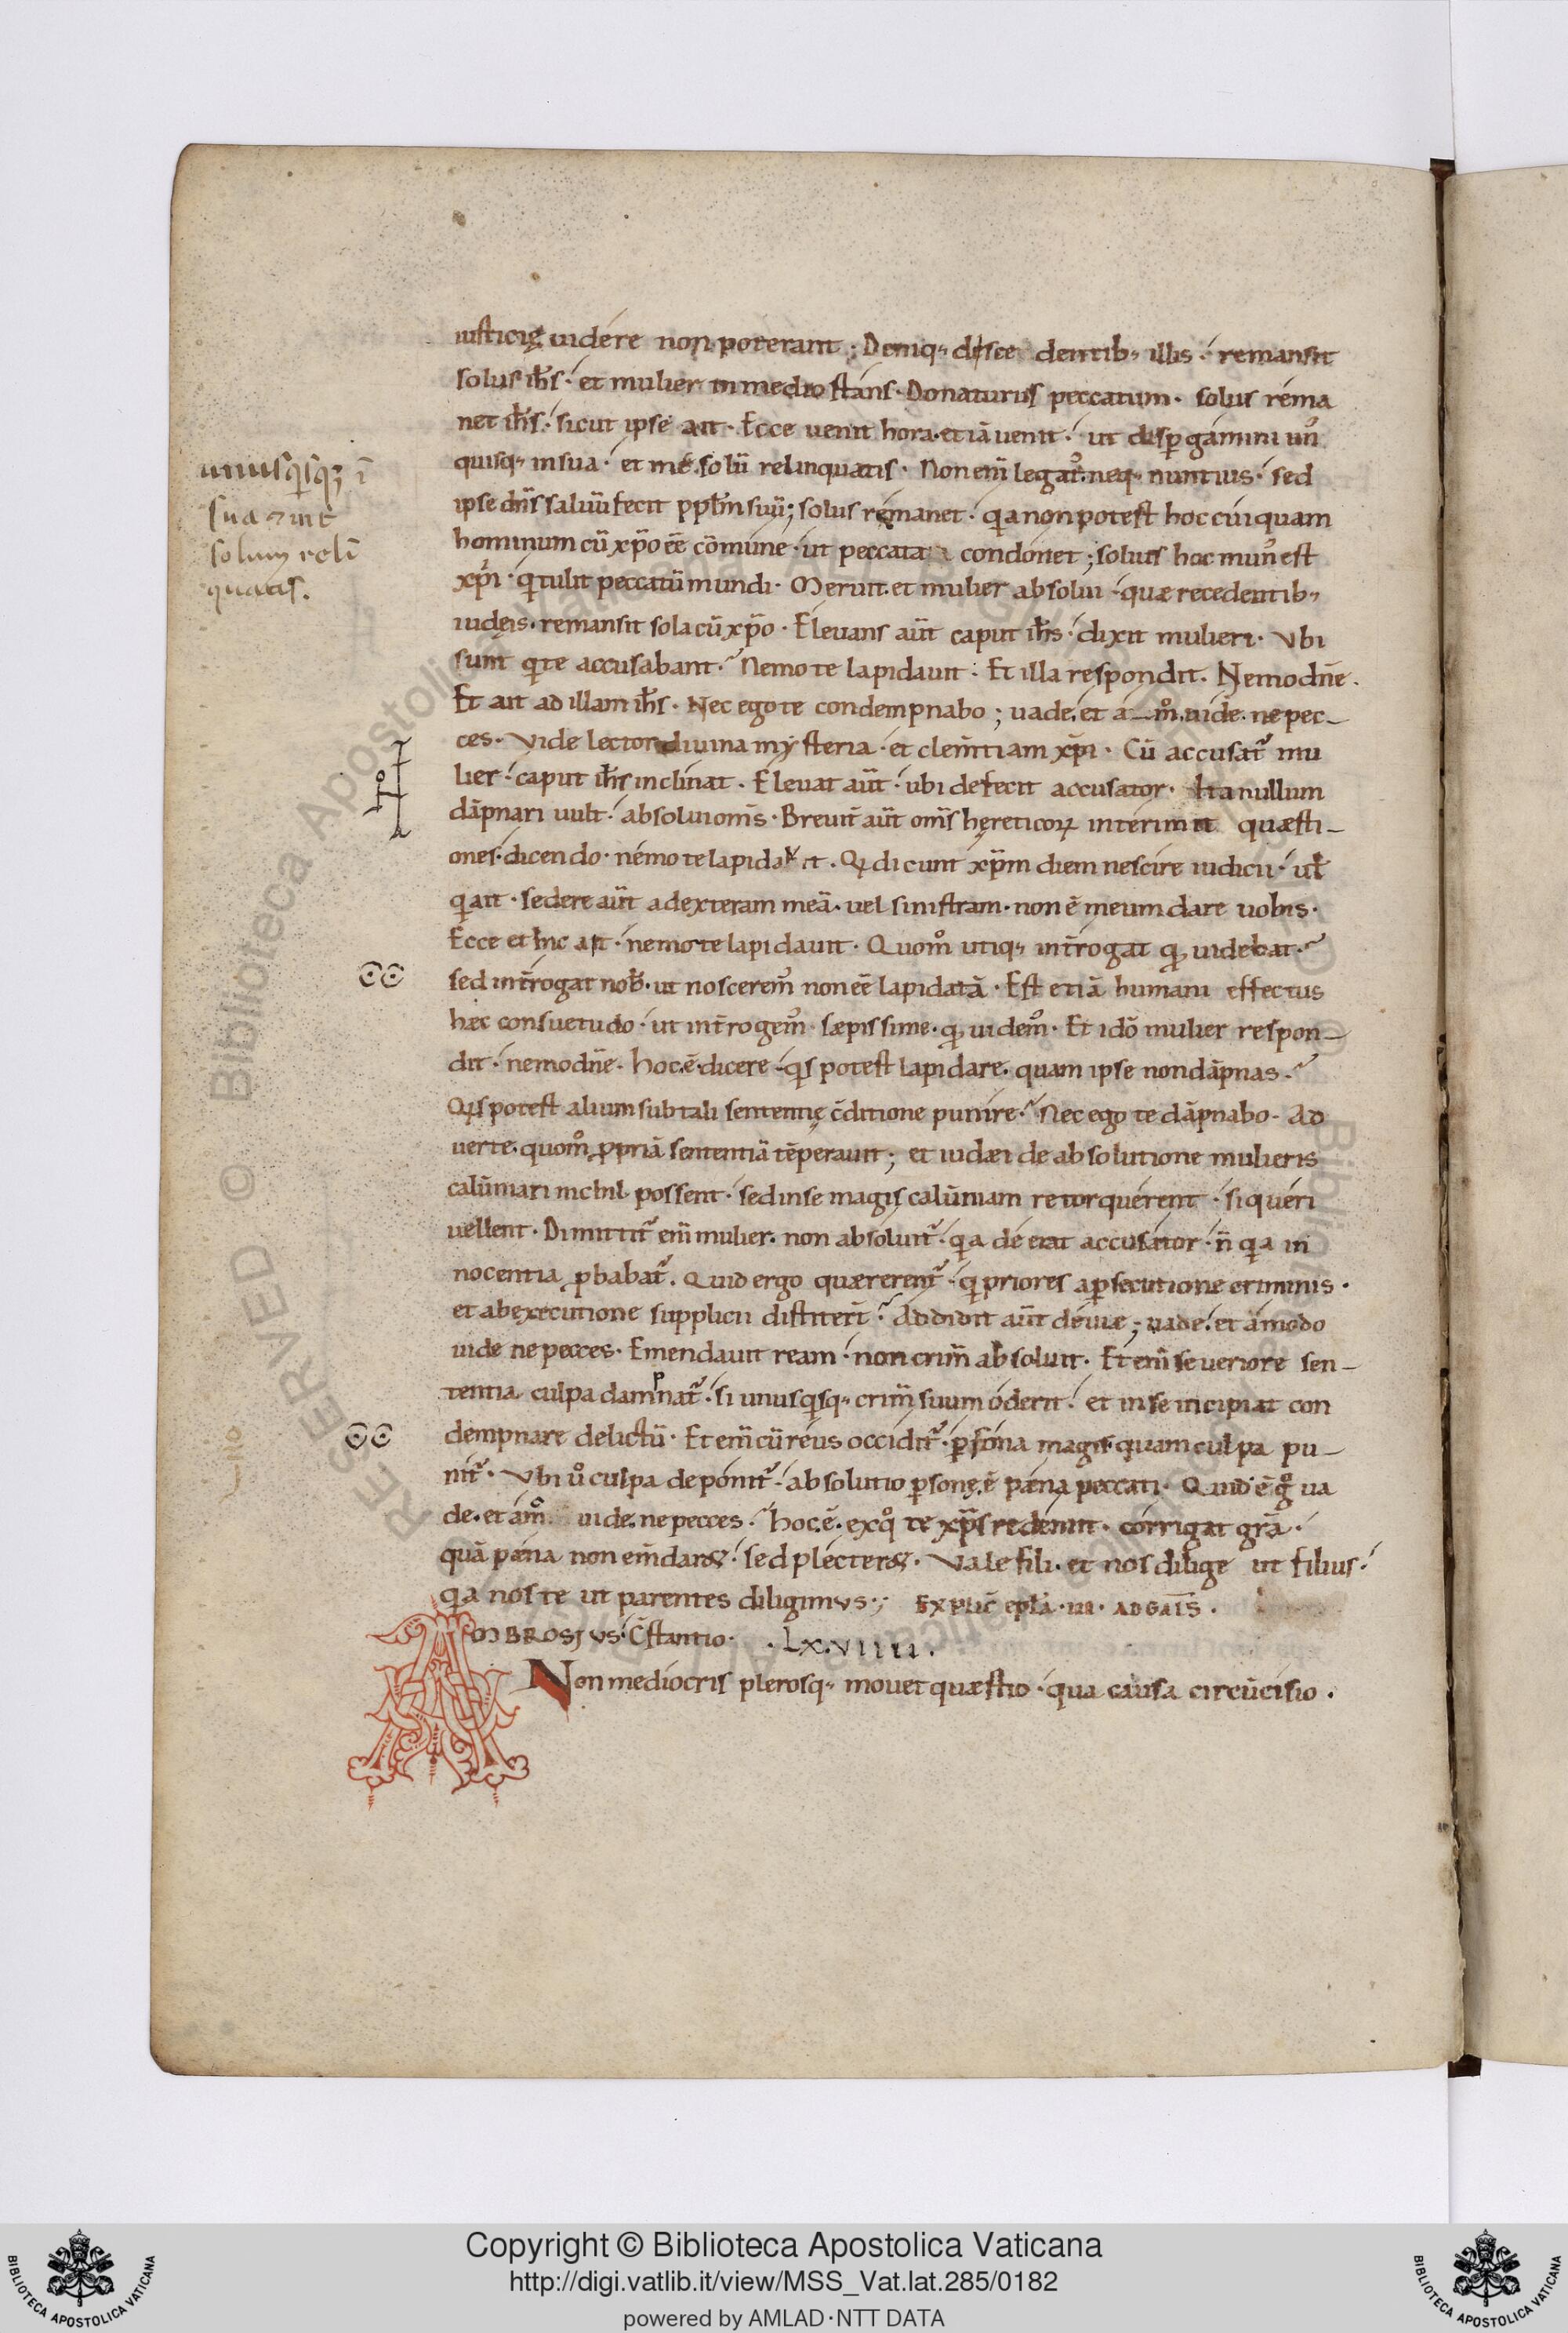 iusticię uidere non poterant ; Deniq; desce dentib; illis . remansit
solus ih̄s . et mulier in medio stans . Donaturus peccatum . solus rema
net ih̄s . sicut ipse ait . Ecce uenit hora . et iā uenit . ut disꝑgamini un᷒
quisq; in sua . et me solū relinquatis . Non eni͂ legat᷒ . neq; nuntius . sed
ipse dn̄s saluū fecit ppłm suū ; solus remanet . qͥa non potest hoc cuiquam
hominum cū xp̄o eē cōmune . ut peccata condonet ; solius hoc mun᷒ est
xp̄i . qͥ tulit peccatū mundi . Meruit et mulier absolui . quæ recedentib;
iudęis . remansit sola cū xp̄o . Eleuans aūt caput ih̄s . dixit mulieri . Vbi
sunt qͥ te accusabant . Nemo te lapidauit . Et illa respondit . Nemo dn̄e .
Et ait ad illam ih̄s . Nec ego te condempnabo ; uade . et a – mͦ . uide . ne pec –
ces . Vide lector diuina mysteria . et clem̄tiam xp̄i . Cū accusat᷑ mu
lier . caput ih̄s inclinat . Eleuat aūt . ubi defecit accusator . Ita nullum
dāpnari uult . absolui om̄s . Breuit̄ aūt om̄s hęreticoꝝ interimit quæsti –
ones . dicendo . nemo te lapidauit . Qͥ dicunt xp̄m diem nescire iudicii . uł
qͥ ait . sedere aūt ad exteram meā . uel sinistram . non ē meum dare uobis .
Ecce et hic ait . nemo te lapidauit . Quomͦ utiq; int̄rogat qͦ uidebat .
sed int̄rogat nob̄ . ut noscerem᷒ non eē lapidatā . Est etiā humani effectus
hæc consuetudo . ut int̄rogem᷒ sæpissime . qͦ uidem᷒ . Et idō mulier respon –
dit . nemo dn̄e . hoc . ē . dicere . qͥs potest lapidare . quam ipse non dāpnas .
Qͥs potest alium sub tali sententię c̄ditione punire . Nec ego te dāpnabo . Ad
uerte . quomͦ ꝓpriā sententiā tēperauit ; et iudæi de absolutione mulieris
calūniari nichil possent . sed in se magis calūniam retorquerent . si queri
uellent . Dimittit᷑ eni͂ mulier . non absoluit᷑ . qͥa deerat accusator . n̄ qͥa in
nocentia ꝓbabat᷑ . Quid ergo quærerent᷑ . qͥ priores a ꝑsecutione criminis .
et ab executione supplicii distiter̄t . Addidit aūt deuiæ ; uade . et amodo
uide ne pecces . Emendauit ream . non crim̄ absoluit . Et eni͂ seueriore sen –
tentia culpa dampnat᷑ . si unusqͥsq; crim̄ suum oderit . et in se incipiat con
dempnare delictū . Et eni͂ cū reus occidit᷑ . ꝑsona magis quam culpa pu –
nit᷑ . Vbi uͦ culpa deponit᷑ . absolutio ꝑsonę . ē pæna peccati . Quid ē gͦ ua
de . et amͦ uide . ne pecces . hoc . ē . ex qͦ te xp̄s redemit . corrigat gr̄a .
quā pæna non em̄daret . sed plecteret . Vale fili . et nos dilige ut filius .
qͥa nos te ut parentes diligimus ; Explic̄ epłā . III . ad Gais̄ .
AMBROSIUS . C̄stantio . . Lx.viiii .
Non mediocris plerosq; mouet quæstio . qua causa circūcisio .
unusqͥsqꝫ ī
sua ⁊ me
solum reli͂
quatis .